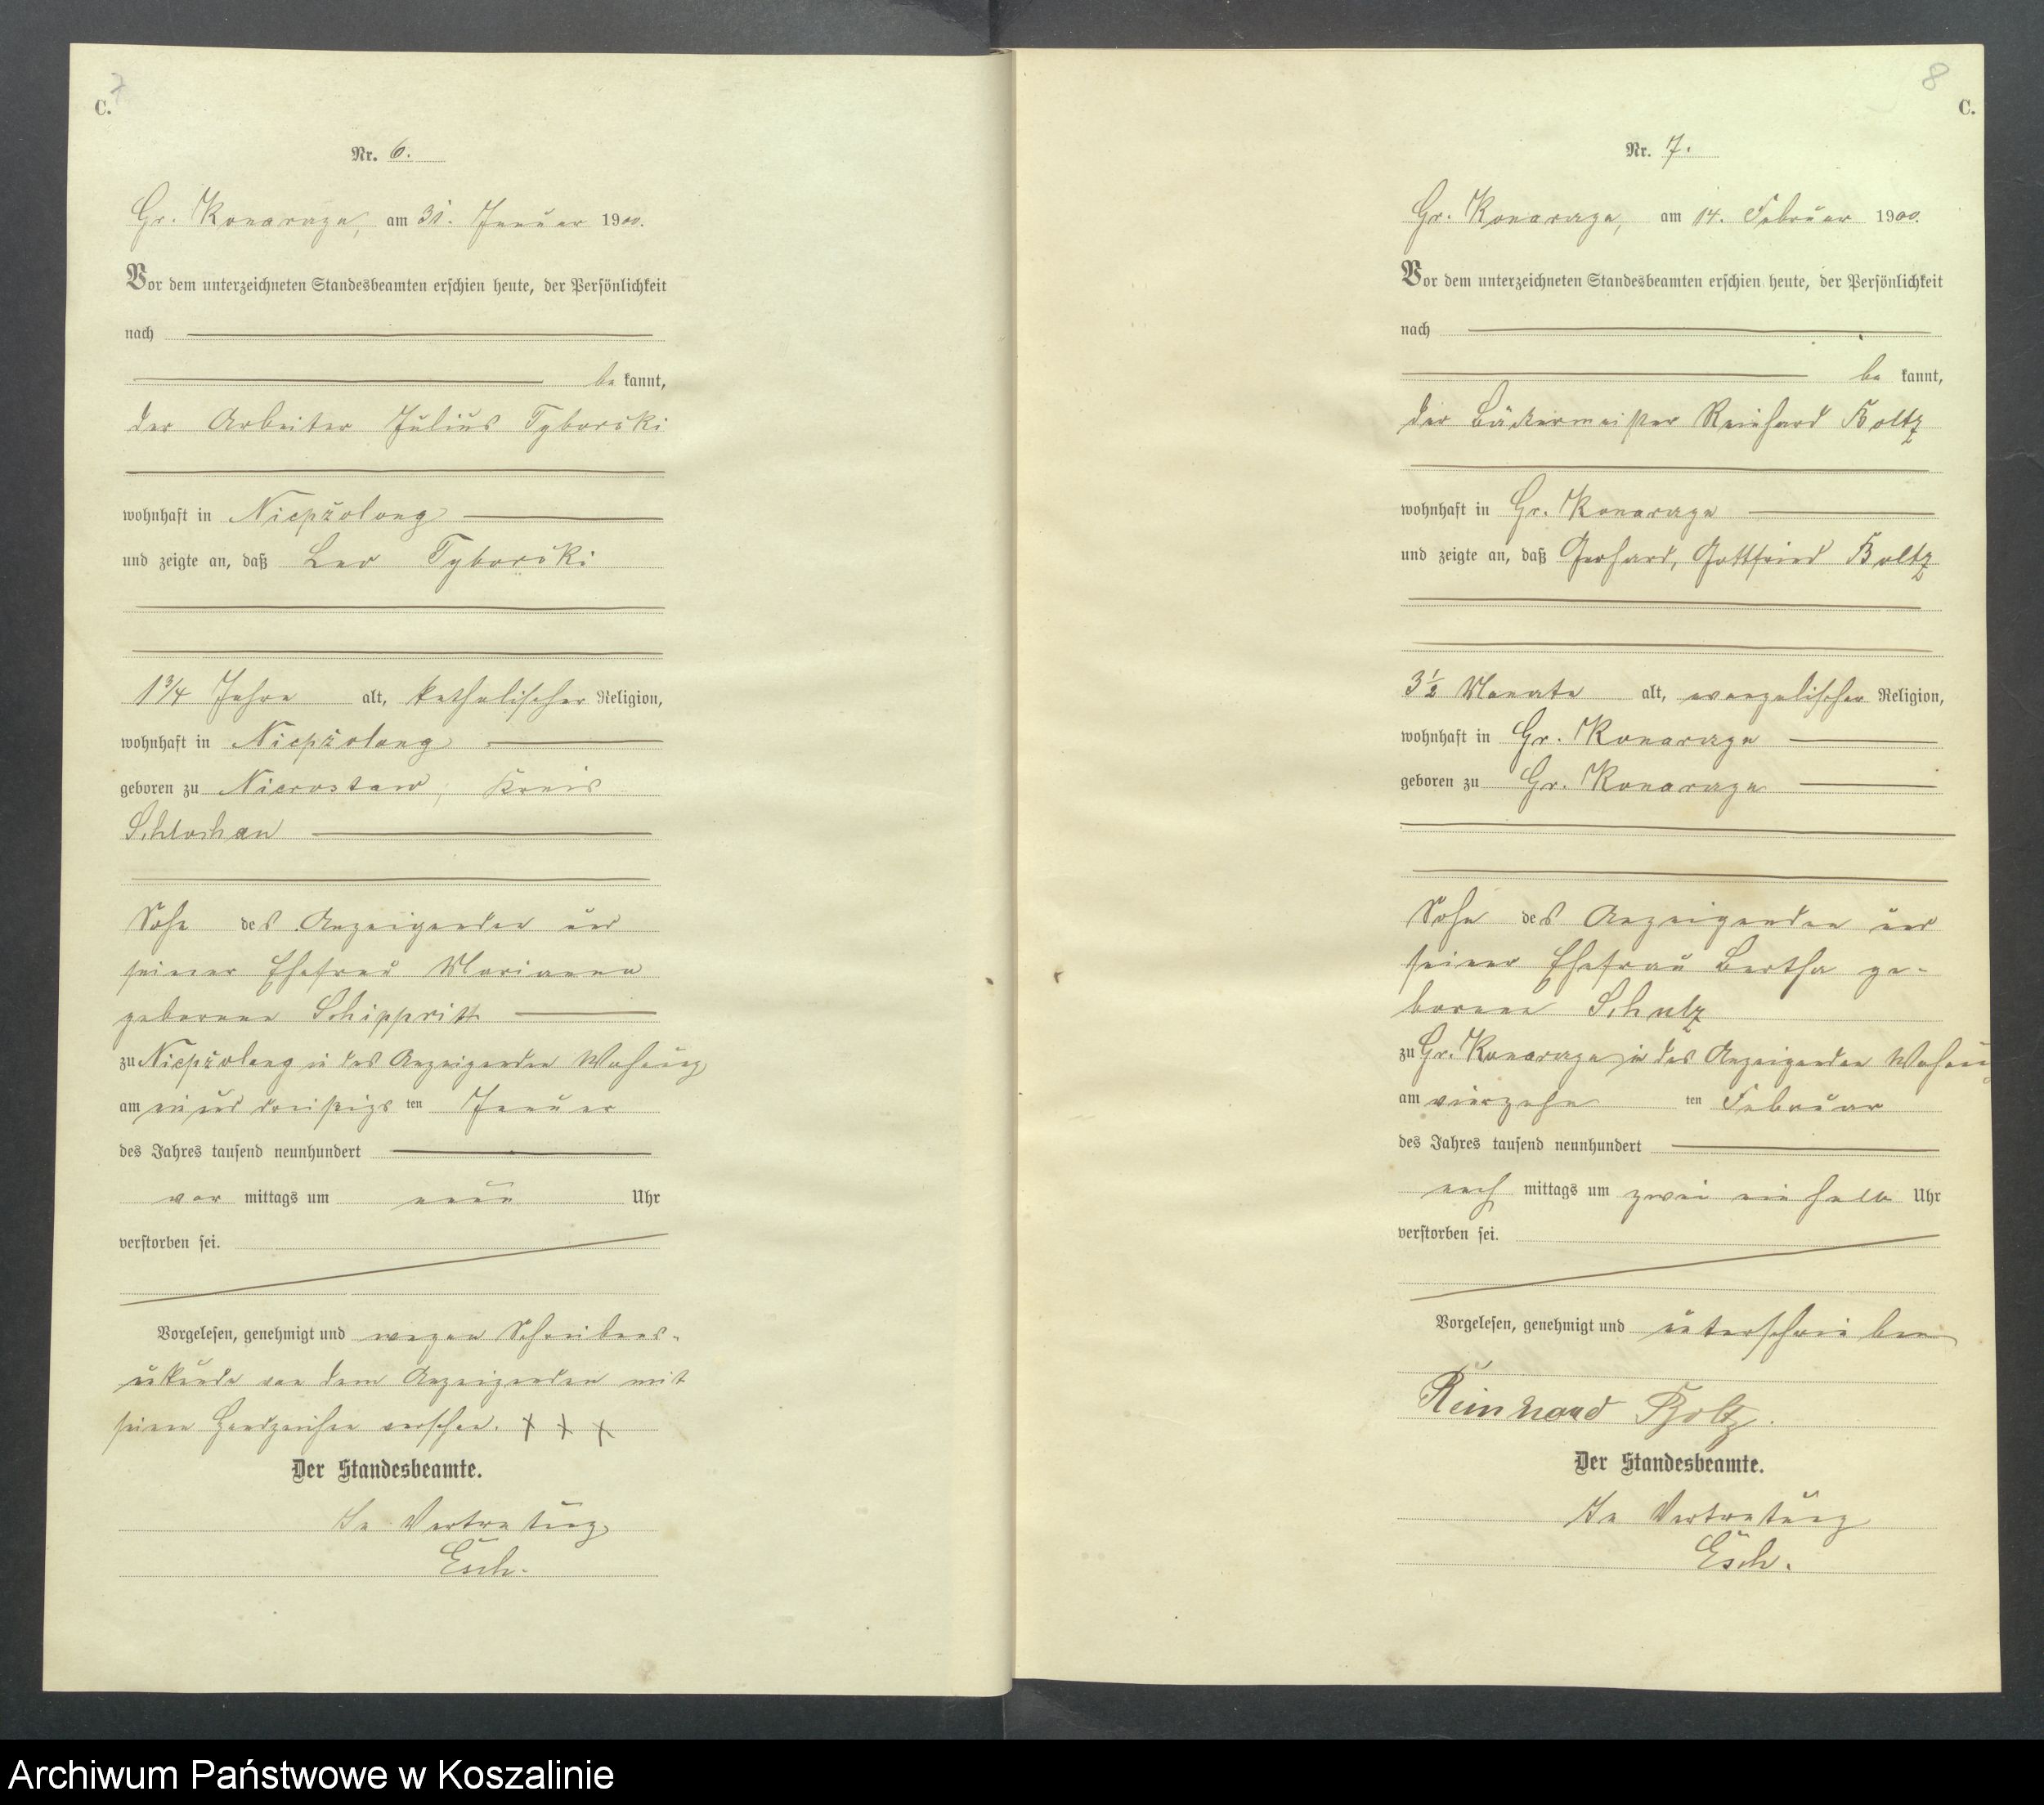 7
C.
Nr. 6.
Gr. Konarzyn, am 31. Januar 1900.
Vor dem unterzeichneten Standesbeamten erschien heute, der Persönlichkeit
nach
be kannt,
der Arbeiter Julius Tyborski
wohnhaft in Niepszolong
und zeigte an, daß Leo Tyborski
1 3/4 Jahre alt, katholischer Religion,
wohnhaft in Niepszolong
geboren zu Kreis
Schlochau
Sohn des Anzeigenden und
seiner Ehefrau Marianna
geborenen
zu Niepszolong in des Anzeigenden Wohnung
am einunddreißigs ten Januar
des Jahres tausend neunhundert
vor mittags um neun Uhr
verstorben sei.
Vorgelesen, genehmigt und wegen Schreibens-
unkunde von dem Anzeigenden mit
seinem Handzeichen versehen. + + +
Der Standesbeamte.
In Vertretung
Esch.
8
C.
Nr. 7.
Gr. Konarzyn, am 14. Februar 1900.
Vor dem unterzeichneten Standesbeamten erschien heute, der Persönlichkeit
nach
be kannt,
der Bäckermeister Reinhard Boltz
wohnhaft in Gr. Konarzyn
und zeigte an, daß Gerhard, Gottfried Boltz
3 1/2 Monate alt, evangelischer Religion,
wohnhaft in Gr. Konarzyn
geboren zu Gr. Konarzyn
Sohn des Anzeigenden und
seiner Ehefrau Bertha ge-
borenen Schulz
zu Gr. Konarzyn in des Anzeigenden Wohnung
am vierzehn ten Februar
des Jahres tausend neunhundert
nach mittags um zwei ein halb Uhr
verstorben sei.
Vorgelesen, genehmigt und unterschrieben
Reinhard Boltz.
Der Standesbeamte.
In Vertretung
Esch.
Archiwum Państwowe w Koszalinie